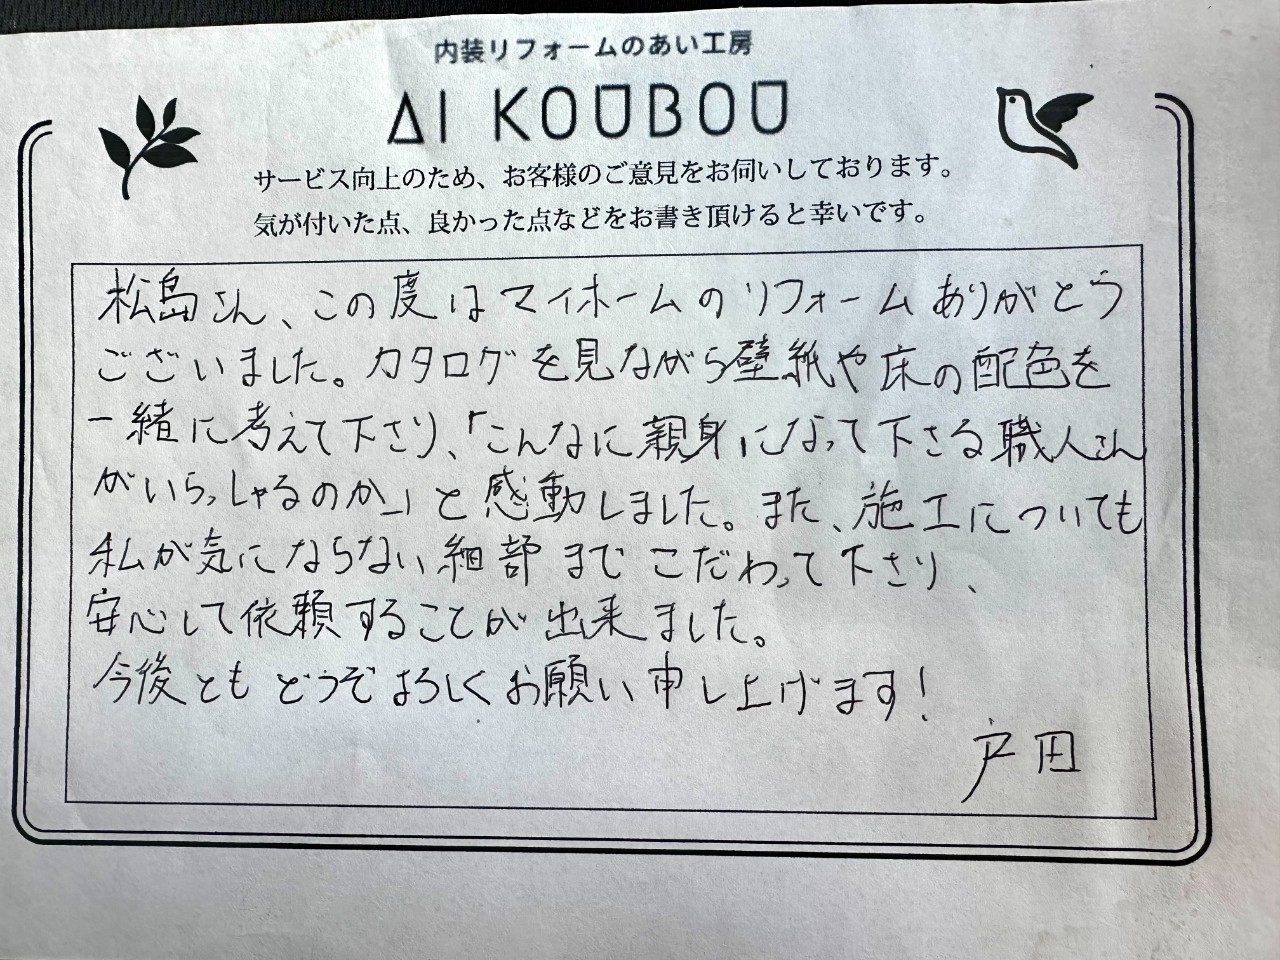 内装リフォームのあい工房
AI KOUBOU
サービス向上のため、お客様のご意見をお伺いしております。
気が付いた点、良かった点などをお書き頂けると幸いです。
松島さん、この度はマイホームのリフォームありがとう
ございました。カタログを見ながら壁紙や床の配色を
一緒に考えて下さり、「こんなに親身になって下さる職人さん
がいらっしゃるのか」と感動しました。また、施工についても
私が気にならない細部までこだわって下さり、
安心して依頼することが出来ました。
今後ともどうぞよろしくお願い申し上げます!
戸田